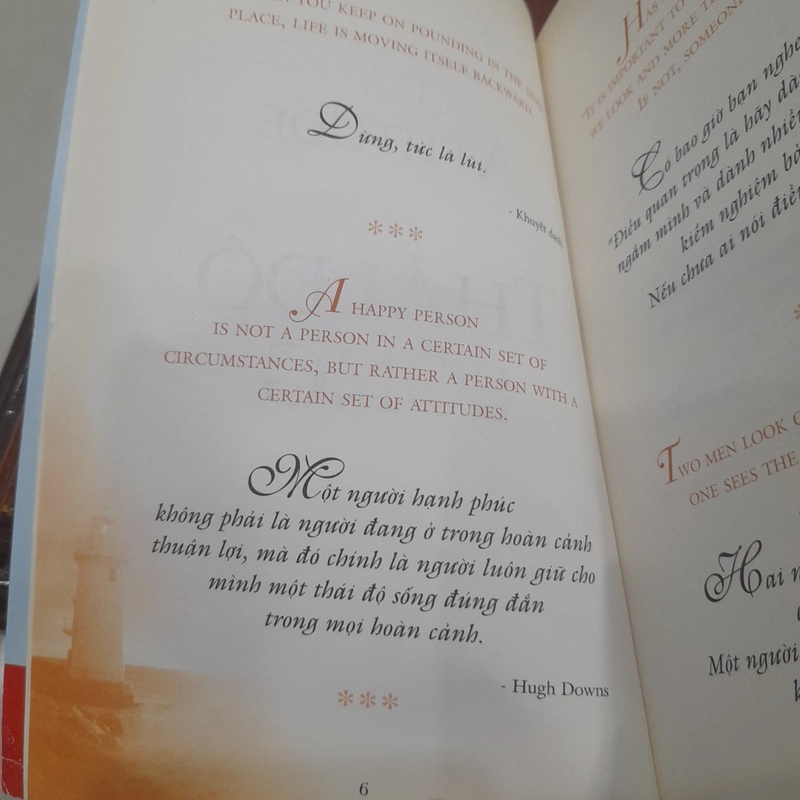 YOU KEEP ON POUNDING IN THE SAME
PLACE, LIFE IS MOVING ITSELF BACKWARD.
Dừng, tức là lùi.
- Khuyết danh
***
A HAPPY PERSON
IS NOT A PERSON IN A CERTAIN SET OF
CIRCUMSTANCES, BUT RATHER A PERSON WITH A
CERTAIN SET OF ATTITUDES.
Một người hạnh phúc
không phải là người đang ở trong hoàn cảnh
thuận lợi, mà đó chính là người luôn giữ cho
mình một thái độ sống đúng đắn
trong mọi hoàn cảnh.
- Hugh Downs
***
6
HAS
IT IS IMPORTANT TO
WE LOOK AND MORE
IF NOT, SOMEONE
Có bao giờ bạn
"Điều quan trọng là hãy
ngắm mình và dành nhiều
kiểm nghiệm
Nếu chưa ai nói
TWO MEN LOOK
ONE SEES THE
Hai
Một người